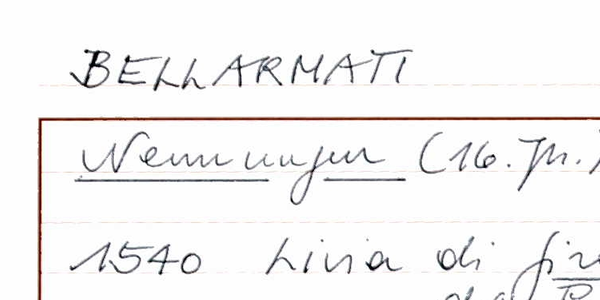 BELLARMATI
Nennungen (16. Jh.)
1540 Livia di